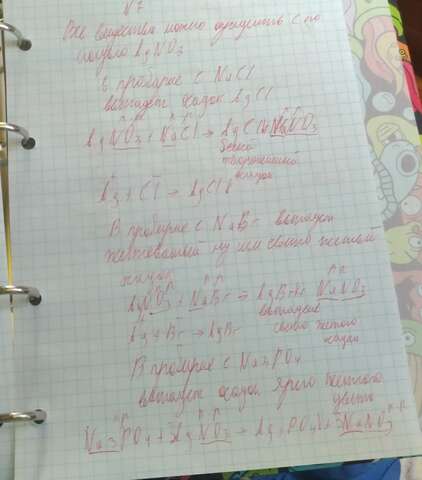 N2
Все вещества можно определить с по
мощью AgNO3
В пробирке с NaCl
выпадет осадок AgCl
AgNO3 + NaCl → AgCl↓ + NaNO3
белый
творожистый
осадок
Ag + Cl → AgCl↓
В пробирке с NaBr выпадет
желтоватый или светло желтый
осадок
AgNO3 + NaBr = AgBr↓ + NaNO3
выпадение
светло желтого
осадка
Ag + Br → AgBr
В пробирке с Na3PO4
выпадет осадок ярко желтого
цвета
Na3PO4 + 3AgNO3 → Ag3PO4↓ + 3NaNO3